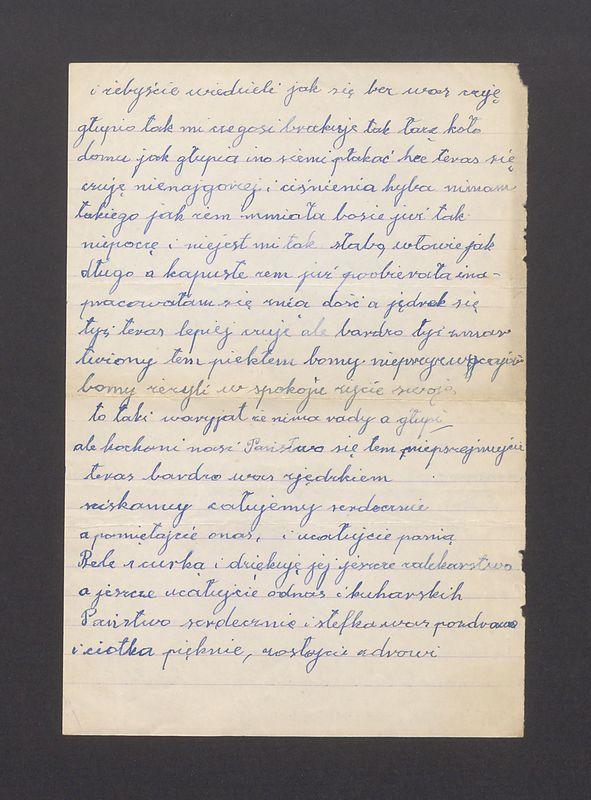 i żebyście wiedzieli jak się bez was czuję
głupio tak mi czegosi brakuje tak łażę koło
domu jak głupia ino siemi płakać hce teras się
czuję nienajgorzej i ciśnienia hyba nimam
takiego jak żem mmiała bosie już tak
niepocę i niejest mi tak słabo włowie jak
długo a kapuste żem już poobierała ina-
pracowałam się znia dość a jędrek się
tyż teras lepiej czuje ale bardzo tyż zmar
twiony tem piekłem bomy
bomy żeżyli w spokoju życie swoje
to taki waryjat że nima rady a głupi
ale kochani nasi Państwo się tem nieprzejmujcie
teras bardzo was zjędrkiem
sciskamy całujemy serdecznie
apomiętajcie onas, i ucałujcie panią
Rele i curka i dziękuję jej jeszcze zalekarstwo
a jeszcze ucałujcie odnas i kuharskich
Państwo serdecznie i stefka was pozdrawia
i ciotka pięknie, zostajcie zdrowi